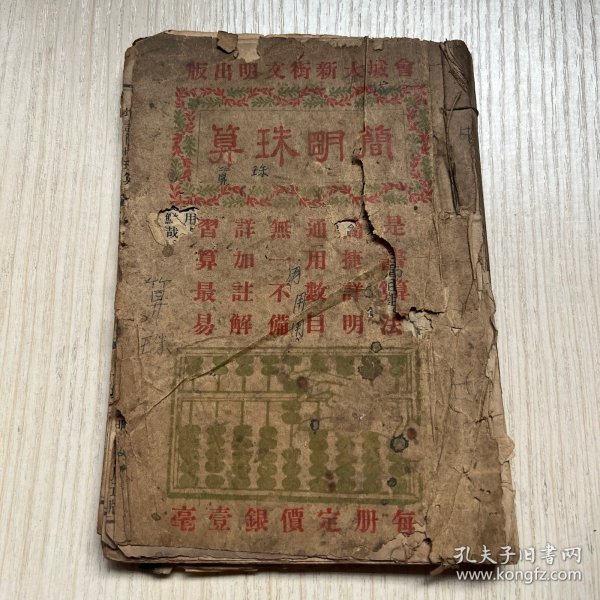 會城大新街文明出版
簡明珠算
珠算
是書算法
捷詳明
通用數目
無不備
詳加註解
習算最易
用
哉
算珠
每册定價銀壹毫
孔夫子旧书网
www.kongfz.com